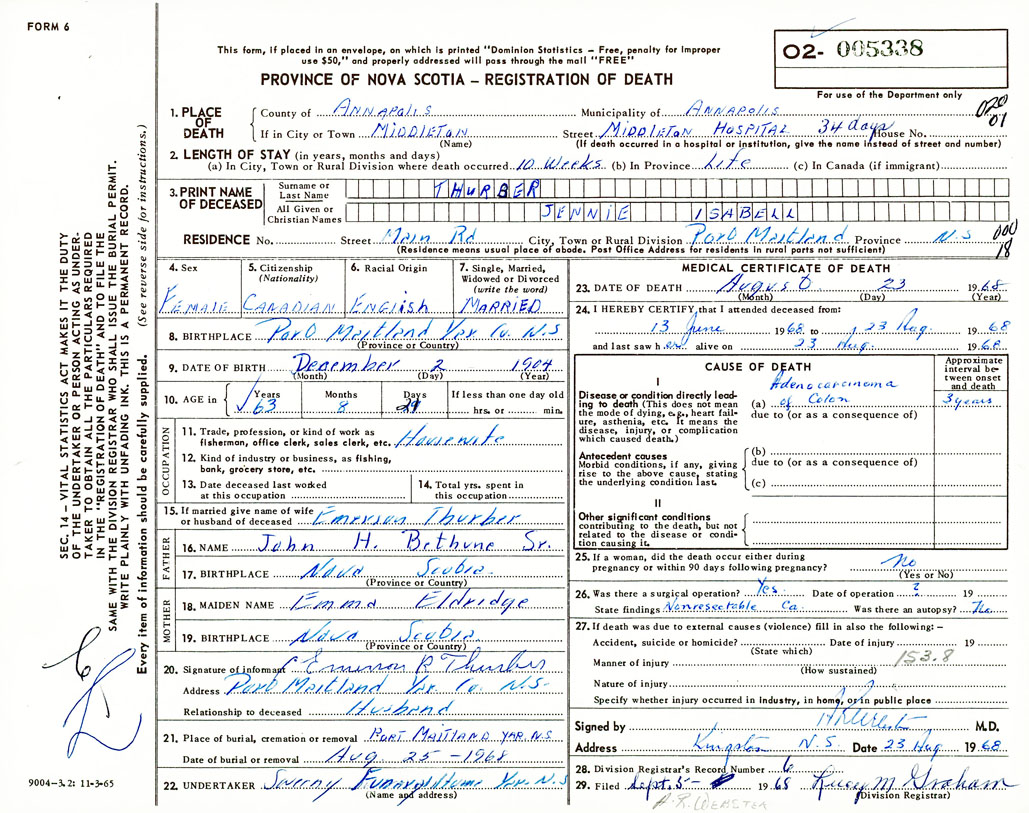 FORM 6
This form, if placed in an envelope, on which is printed "Dominion Statistics – Free, penalty for improper
use $50," and properly addressed will pass through the mail "FREE"
PROVINCE OF NOVA SCOTIA – REGISTRATION OF DEATH
02- 005338
For use of the Department only
020
01
1. PLACE OF DEATH
County of Annapolis Municipality of Annapolis
If in City or Town Middleton Street Middleton Hospital 34 days House No.
(Name) (If death occurred in a hospital or institution, give the name instead of street and number)
2. LENGTH OF STAY (in years, months and days)
(a) In City, Town or Rural Division where death occurred 10 Weeks (b) In Province Life (c) In Canada (if immigrant)
3. PRINT NAME OF DECEASED
Surname or Last Name THURBER
All Given or Christian Names JENNIE ISABELL
RESIDENCE No. Street Main Rd City, Town or Rural Division Port Maitland Province N.S
(Residence means usual place of abode. Post Office Address for residents in rural parts not sufficient)
000
18
4. Sex Female
5. Citizenship (Nationality) Canadian
6. Racial Origin English
7. Single, Married, Widowed or Divorced (write the word) Married
8. BIRTHPLACE Port Maitland Yar. Co. N.S
(Province or Country)
9. DATE OF BIRTH December 2 1904
(Month) (Day) (Year)
10. AGE in Years 63 Months 8 Days 21 If less than one day old hrs. or min.
OCCUPATION
11. Trade, profession, or kind of work as
fisherman, office clerk, sales clerk, etc. Housewife
12. Kind of industry or business, as fishing,
bank, grocery store, etc.
13. Date deceased last worked
at this occupation
14. Total yrs. spent in
this occupation
15. If married give name of wife
or husband of deceased Emerson Thurber
FATHER
16. NAME John H. Bethune Sr.
17. BIRTHPLACE Nova Scotia
(Province or Country)
MOTHER
18. MAIDEN NAME Emma Eldridge
19. BIRTHPLACE Nova Scotia
(Province or Country)
20. Signature of informant Emerson R Thurber
Address Port Maitland Yar. Co. N.S.
Relationship to deceased Husband
21. Place of burial, cremation or removal Port Maitland Yar. N.S
Date of burial or removal Aug. 25 - 1968
22. UNDERTAKER Sweeny Funeral Home Yar. N.S
(Name and address)
MEDICAL CERTIFICATE OF DEATH
23. DATE OF DEATH August 23 1968
(Month) (Day) (Year)
24. I HEREBY CERTIFY that I attended deceased from:
13 June 1968 to 23 Aug. 1968
and last saw her alive on 23 Aug. 1968
CAUSE OF DEATH
Approximate interval between onset and death
I
Disease or condition directly leading to death (This does not mean the mode of dying, e.g., heart failure, asthenia, etc. It means the disease, injury, or complication which caused death.)
Adenocarcinoma
(a) of Colon 3 years
due to (or as a consequence of)
Antecedent causes
Morbid conditions, if any, giving rise to the above cause, stating the underlying condition last.
(b)
due to (or as a consequence of)
(c)
II
Other significant conditions
contributing to the death, but not related to the disease or condition causing it.
25. If a woman, did the death occur either during
pregnancy or within 90 days following pregnancy? No
(Yes or No)
26. Was there a surgical operation? Yes Date of operation ? 19
State findings Nonresectable Ca. Was there an autopsy? No
27. If death was due to external causes (violence) fill in also the following: –
Accident, suicide or homicide? Date of injury 19
(State which)
Manner of injury 153.8
(How sustained)
Nature of injury
Specify whether injury occurred in industry, in home, or in public place
Signed by M.D.
Address Kingston N.S. Date 23 Aug 1968
28. Division Registrar's Record Number 6
29. Filed Sept. 5 - 1968 Lucy M Graham
(Division Registrar)
H.R. WEBSTER
SEC. 14 – VITAL STATISTICS ACT MAKES IT THE DUTY
OF THE UNDERTAKER OR PERSON ACTING AS UNDER-
TAKER TO OBTAIN ALL THE PARTICULARS REQUIRED
IN THE "REGISTRATION OF DEATH" AND TO FILE THE
SAME WITH THE DIVISION REGISTRAR WHO SHALL ISSUE THE BURIAL PERMIT.
WRITE PLAINLY WITH UNFADING INK. THIS IS A PERMANENT RECORD.
Every item of information should be carefully supplied. (See reverse side for instructions.)
9004-3.2: 11-3-65